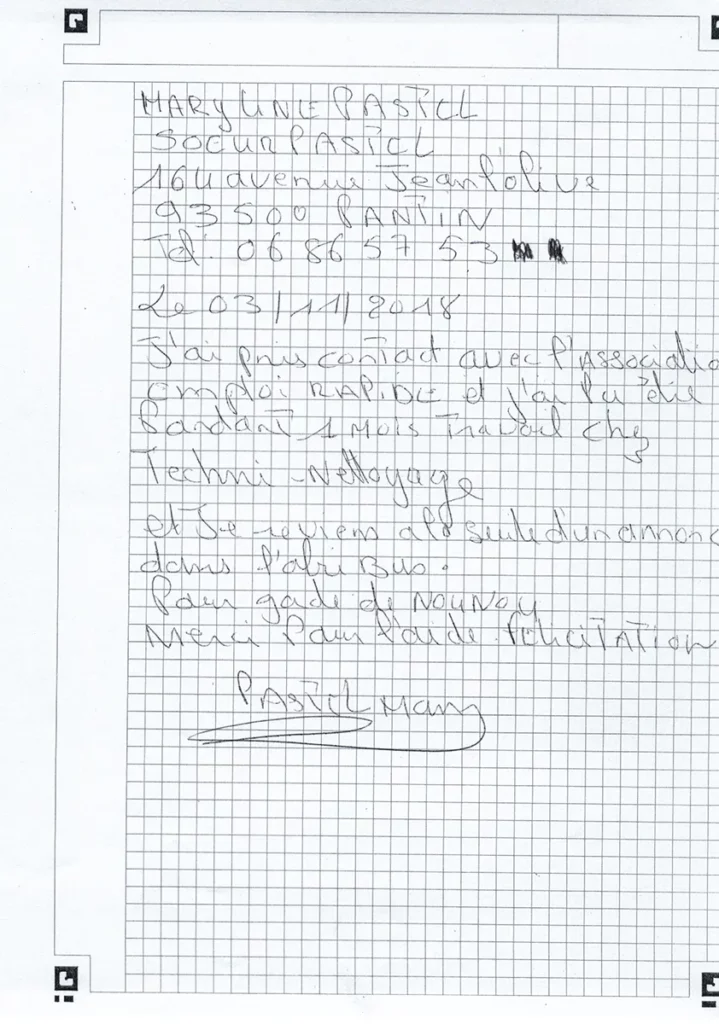 MARYLINE PASTEL
SOEUR PASTEL
164 avenue Jean lolive
93 500 PANTIN
Tel: 06 86 57 53
Le 03/11/2018
J'ai pris contact avec l'Associatio
emploi RAPIDE et j'ai
Pandant 1 Mois Travail chez
Techni-Nettoyage
et Je reviens seule d'un annonc
dans l'abri Bus.
Pour gade de NOUNOU
Merci Pour l'aide féliciTATION
PASTEL Mary